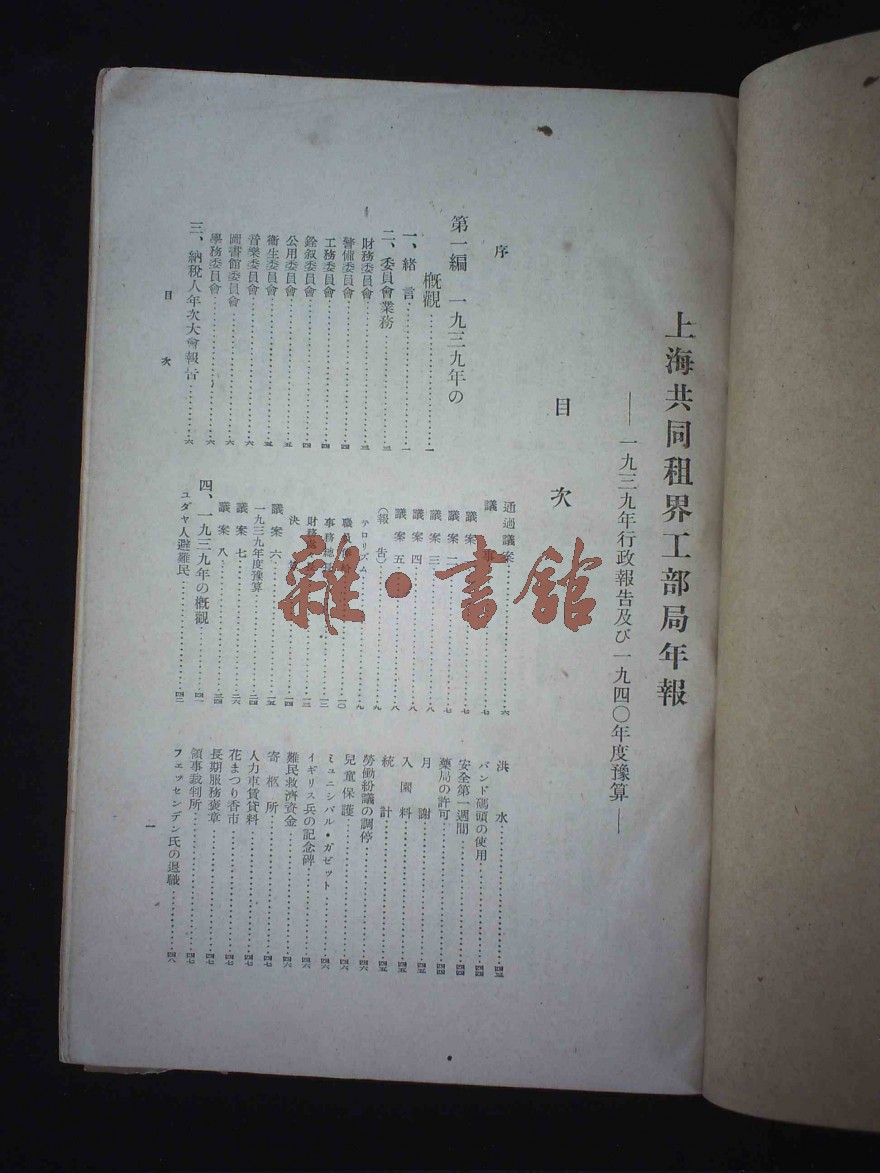 上海共同租界工部局年報
——一九三九年行政報告及び一九四〇年度豫算——
目次
序
第一編 一九三九年の
概觀……一
一、緒言……一
二、委員會業務……三
財務委員會……三
警備委員會……四
工務委員會……四
銓叙委員會……四
公用委員會……五
衞生委員會……五
音樂委員會……五
圖書館委員會……六
學務委員會……六
三、納税人年次大會報告……六
通過議案……六
議事……七
議案……七
議案二……七
議案三……八
議案四……八
議案五……八
(報告)……九
テロリズム……九
職員……一〇
事務總……一二
財務處……一三
決……一四
議案六……一五
一九三九年度豫算……二四
議案七……二六
議案八……三四
四、一九三九年の概觀……四一
ユダヤ人避難民……四二
洪水……四三
バンド碼頭の使用……四四
安全第一週間……四四
藥局の許可……四四
月謝……四五
入園料……四五
統計……四五
勞働紛議の調停……四六
兒童保護……四六
ミュニシパル・ガゼット……四六
イギリス兵の記念碑……四六
難民救濟資金……四六
寄柩所……四七
人力車賃貸料……四七
花まつり香市……四七
長期服務褒章……四七
領事裁判所……四七
フェッセンデン氏の退職……四八
目次
一
雜·書館